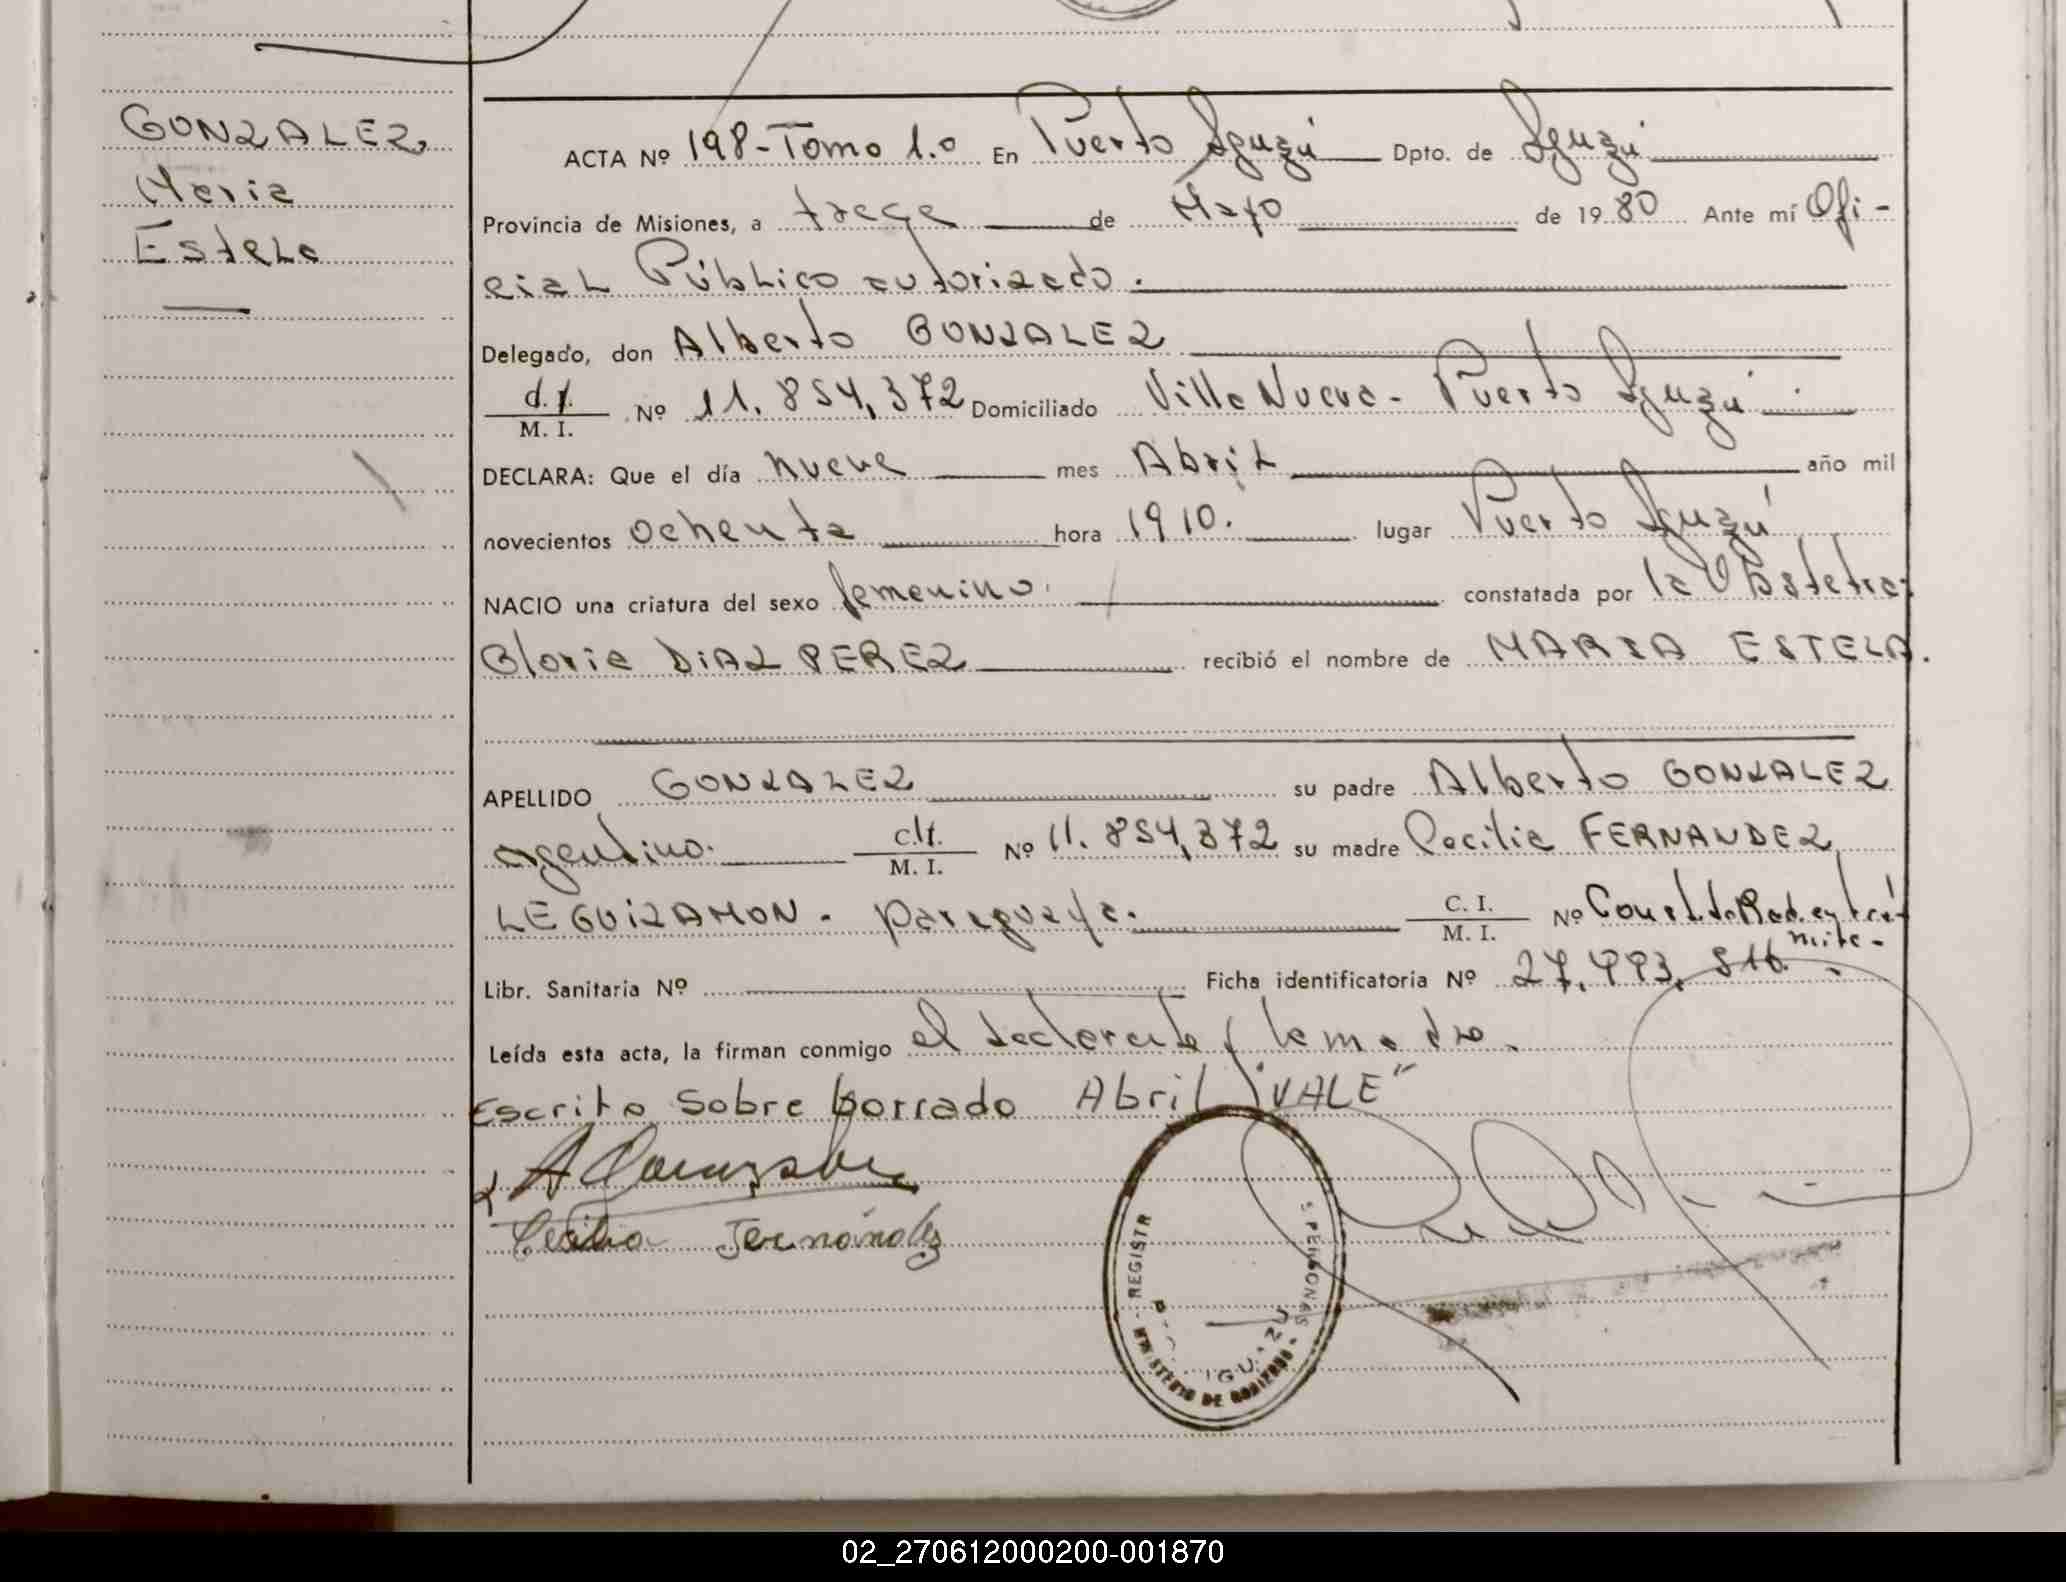 GONZALEZ,
Maria
Estela
ACTA Nº 198-Tomo 1.o En Puerto Iguazú Dpto. de Iguazú
Provincia de Misiones, a trece de Mayo de 1980 Ante mí Ofi-
cial Público autorizado.
Delegado, don Alberto GONZALEZ
M. I. Nº 11.854,372 Domiciliado Villa Nueva - Puerto Iguazú
DECLARA: Que el día nueve mes Abril año mil
novecientos ochenta hora 1910. lugar Puerto Iguazú
NACIO una criatura del sexo femenino. constatada por la Obstetra:
Gloria DiAZ PEREZ recibió el nombre de MARIA ESTELA.
APELLIDO GONZALEZ su padre Alberto GONZALEZ
argentino. M. I. Nº 11.854,372 su madre Cecilia FERNANDEZ
LEGUIZAMON. paraguaya. C. I. M. I. Nº Const. de Rad. en trá-
mite-
Libr. Sanitaria Nº Ficha identificatoria Nº 27,993,816.
Leída esta acta, la firman conmigo el declarante y la madre.
Escrito Sobre borrado Abril "VALE"
Cecilia Fernández
REGISTR
PERSONAS
IGUAZU
MINISTERIO DE GOBIERNO
02_270612000200-001870